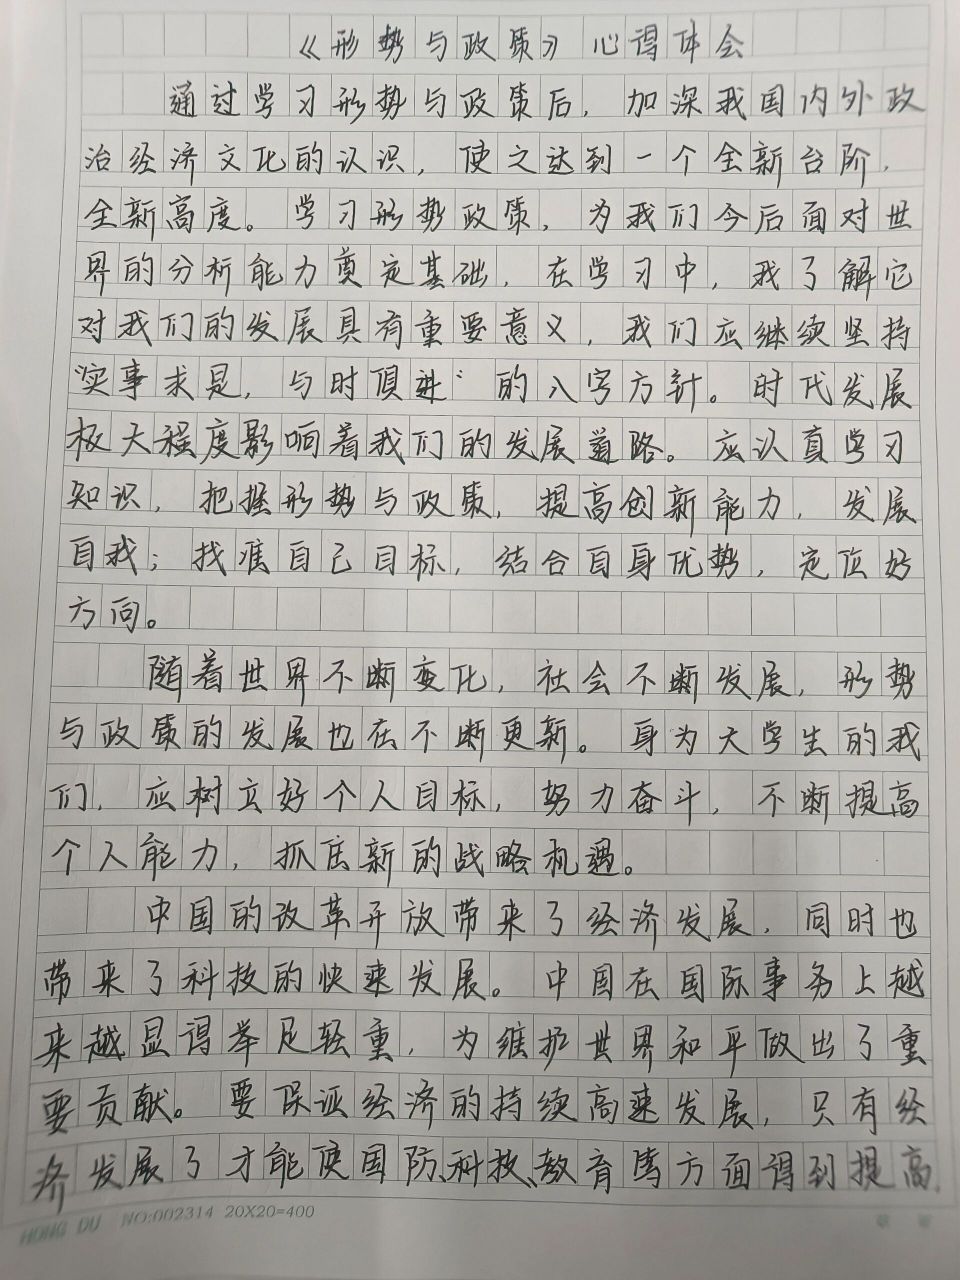 《形势与政策》心得体会
通过学习形势与政策后，加深我国内外政
治经济文化的认识，使之达到一个全新台阶，
全新高度。学习形势政策，为我们今后面对世
界的分析能力奠定基础，在学习中，我了解它
对我们的发展具有重要意义，我们应继续坚持
“实事求是，与时俱进”的八字方针。时代发展
极大程度影响着我们的发展道路。应认真学习
知识，把握形势与政策，提高创新能力，发展
自我；找准自己目标，结合自身优势，定位好
方向。
随着世界不断变化，社会不断发展，形势
与政策的发展也在不断更新。身为大学生的我
们，应树立好个人目标，努力奋斗，不断提高
个人能力，抓住新的战略机遇。
中国的改革开放带来了经济发展，同时也
带来了科技的快速发展。中国在国际事务上越
来越显得举足轻重，为维护世界和平做出了重
要贡献。要保证经济的持续高速发展，只有经
济发展了才能使国防、科技、教育等方面得到提高，
HONG DU NO:002314 20X20=400